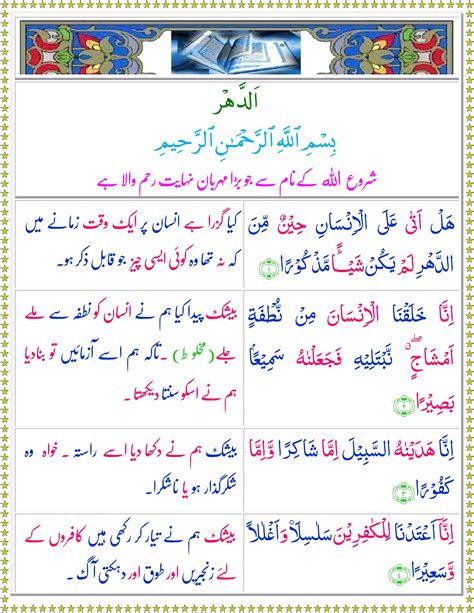 اَلدَّهْر
بِسْمِ اللّٰهِ الرَّحْمٰنِ الرَّحِيْمِ
شروع اللہ کے نام سے جو بڑا مہربان نہایت رحم والا ہے
هَلْ اَتٰى عَلَى الْاِنْسَانِ حِيْنٌ مِّنَ
الدَّهْرِ لَمْ يَكُنْ شَيْـًٔا مَّذْكُوْرًا ﴿١﴾
کیا گزرا ہے انسان پر ایک وقت زمانے میں
کہ نہ تھا وہ کوئی ایسی چیز جو قابل ذکر ہو۔
اِنَّا خَلَقْنَا الْاِنْسَانَ مِنْ نُّطْفَةٍ
اَمْشَاجٍ ۖ نَّبْتَلِيْهِ فَجَعَلْنٰهُ سَمِيْعًۢا
بَصِيْرًا ﴿٢﴾
بیشک پیدا کیا ہم نے انسان کو نطفہ سے ملے
جلے (مخلوط) ۔تاکہ ہم اسے آزمائیں تو بنادیا
ہم نے اسکو سنتا دیکھتا۔
اِنَّا هَدَيْنٰهُ السَّبِيْلَ اِمَّا شَاكِرًا وَّاِمَّا
كَفُوْرًا ﴿٣﴾
بیشک ہم نے دکھا دیا اسے راستہ ۔ خواہ وہ
شکرگذار ہو یا ناشکرا۔
اِنَّاۤ اَعْتَدْنَا لِلْكٰفِرِيْنَ سَلٰسِلَا۟ وَاَغْلٰلًا
وَّسَعِيْرًا ﴿٤﴾
بیشک ہم نے تیار کر رکھی ہیں کافروں کے
لئے زنجیریں اور طوق اور دہکتی آگ ۔